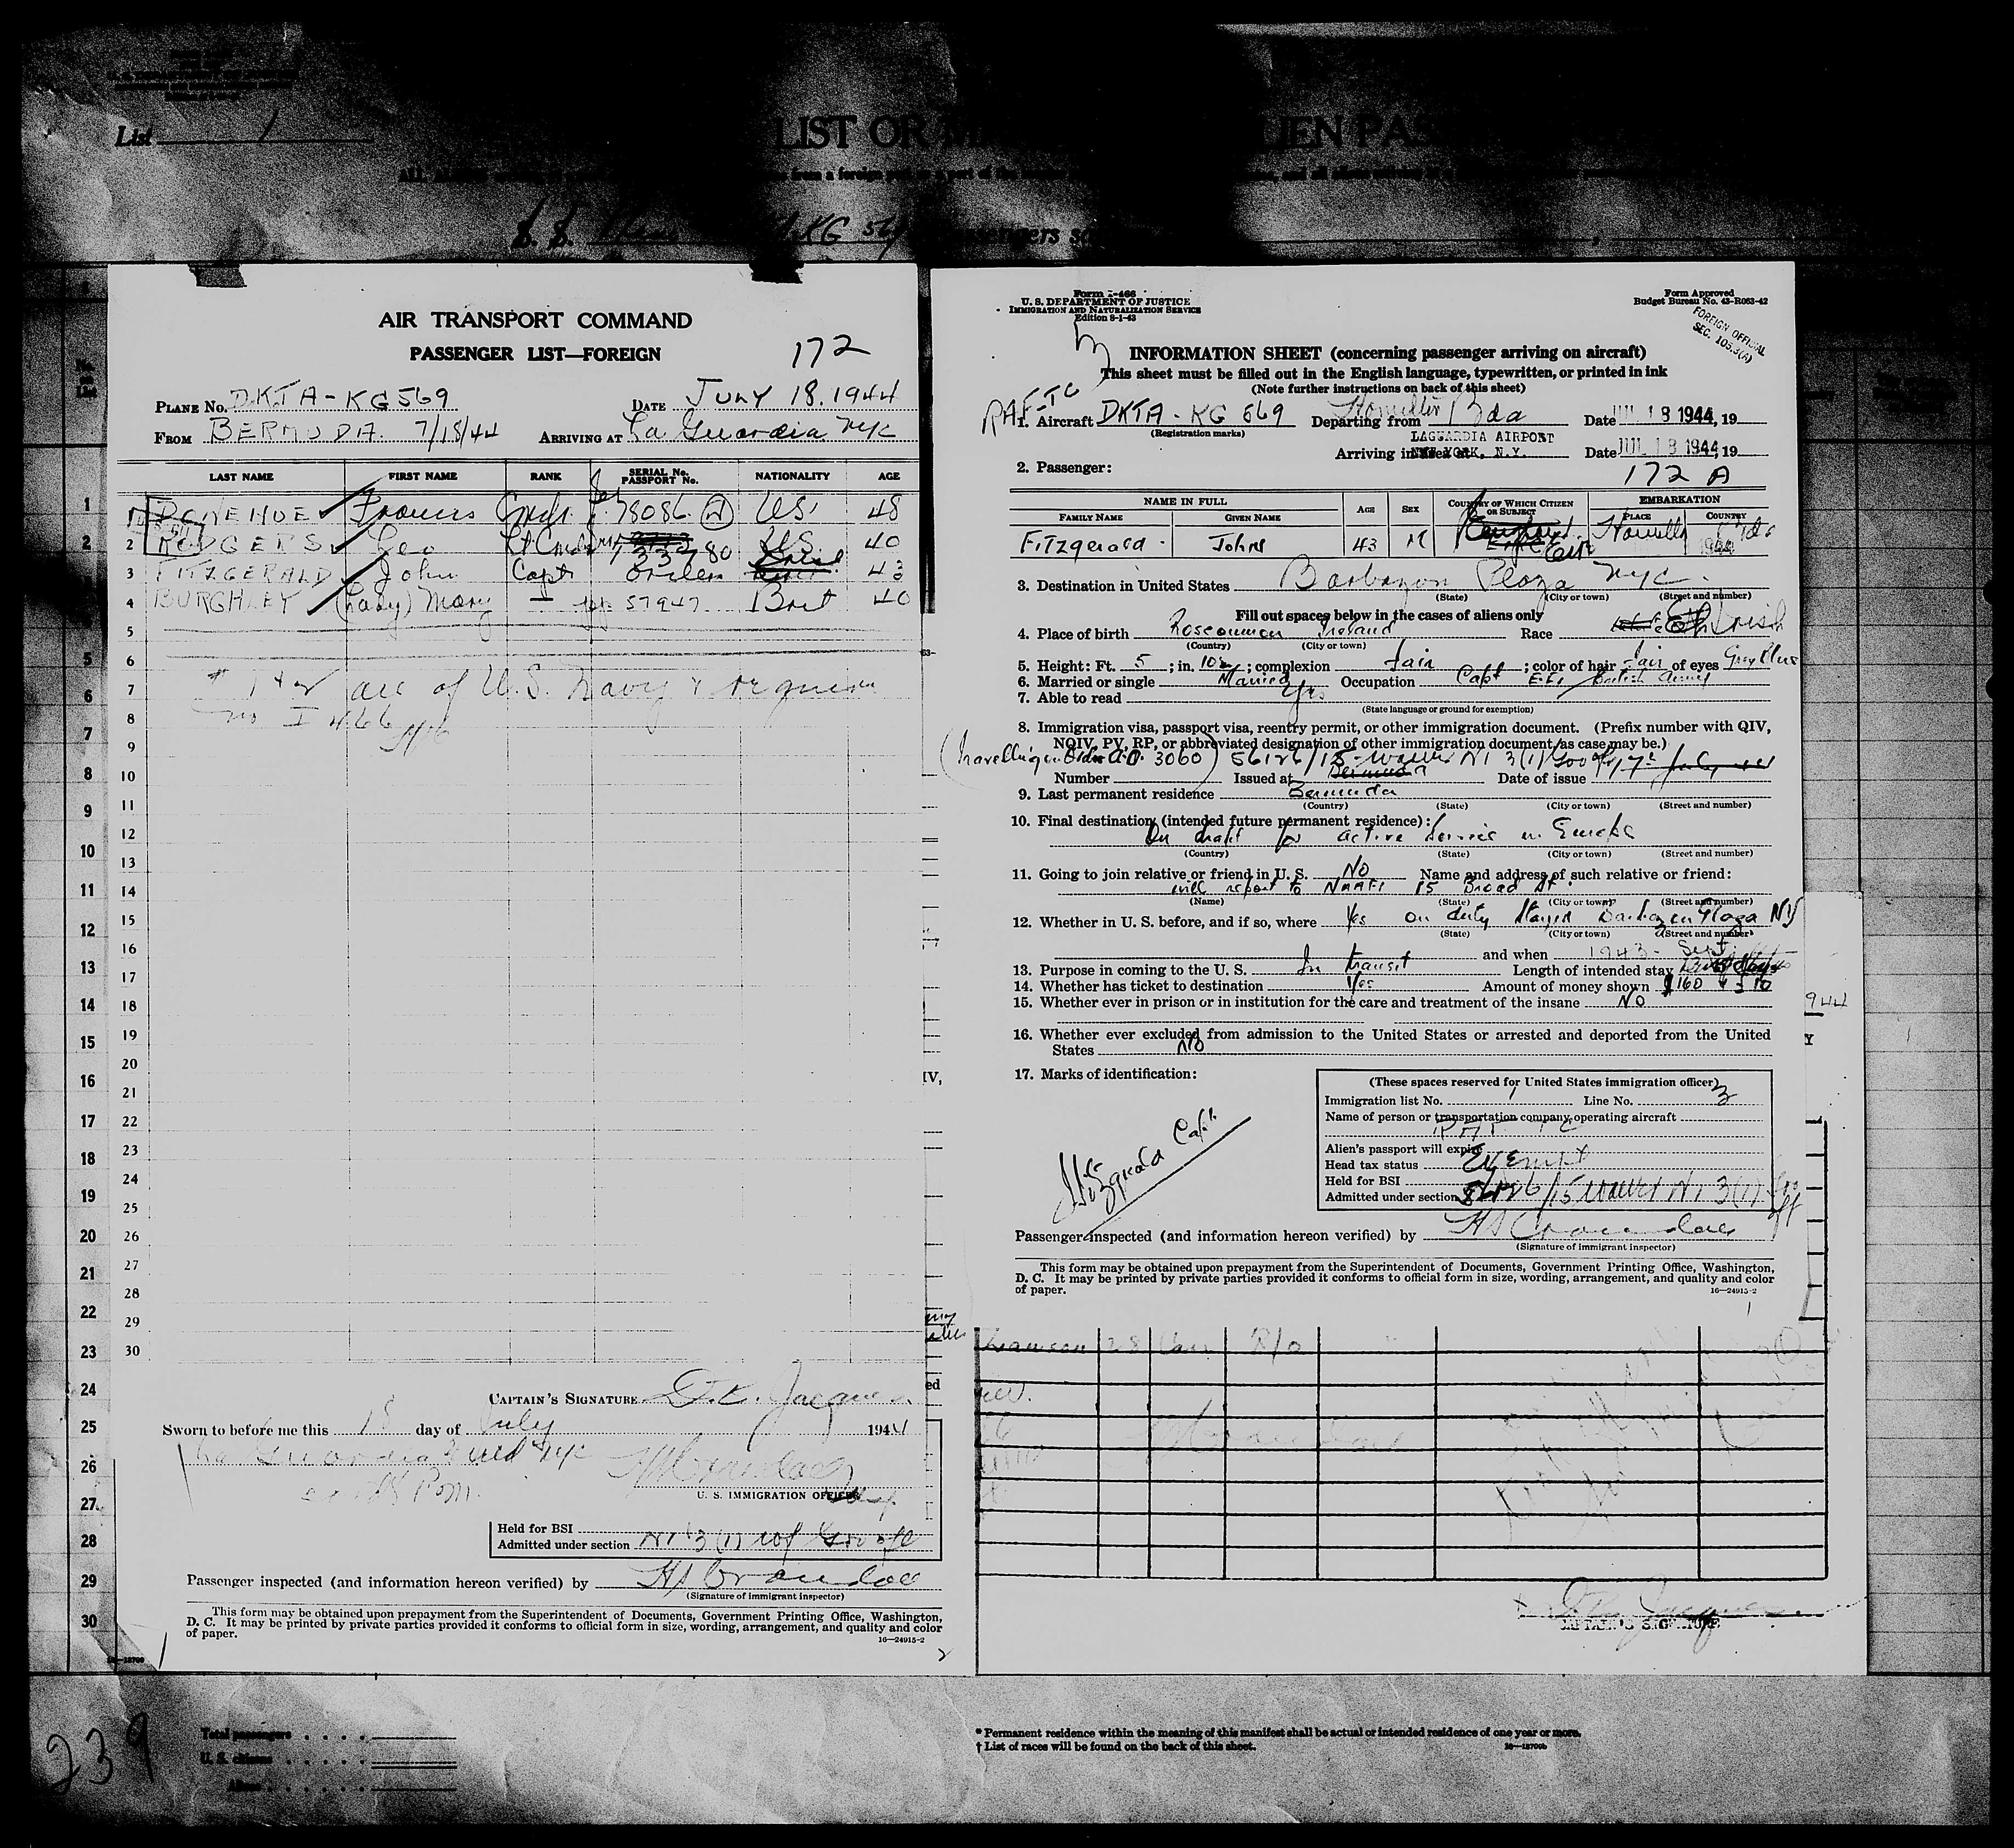 List 1
LIST OR
ALIEN PAS
from a foreign port
S. S.
KG 569
AIR TRANSPORT COMMAND
PASSENGER LIST—FOREIGN
172
PLANE No. DKTA-KG569 DATE JULY 18.1944
FROM BERMUDA 7/18/44 ARRIVING AT La Guardia NYC
LAST NAME FIRST NAME RANK SERIAL No. PASSPORT No. NATIONALITY AGE
1 DONEHUE Francis Cmdr. 78086 US 48
2 RODGERS Geo Lt Cmdr 133780 US 40
3 FITZGERALD John Capt orders 43
4 BURGHLEY (Lady) Mary — 57947 Brit 40
5
6
7 1 & 2 are of U.S. Navy & require
8 no I 466
9
10
11
12
13
14
15
16
17
18
19
20
21
22
23
24
25
26
27
28
29
30
CAPTAIN'S SIGNATURE D.K. Jacques
Sworn to before me this 18 day of July 1944
La Guardia Field NYC
U. S. IMMIGRATION OFFICER
Held for BSI
Admitted under section NI 3(1)
Passenger inspected (and information hereon verified) by HS Crandall
(Signature of immigrant inspector)
This form may be obtained upon prepayment from the Superintendent of Documents, Government Printing Office, Washington,
D. C. It may be printed by private parties provided it conforms to official form in size, wording, arrangement, and quality and color
of paper.
16—24915-2
Form I-466
U. S. DEPARTMENT OF JUSTICE
IMMIGRATION AND NATURALIZATION SERVICE
Edition 8-1-43
Form Approved
Budget Bureau No. 43-R063-42
FOREIGN OFFICIAL
SEC. 105.3(A)
INFORMATION SHEET (concerning passenger arriving on aircraft)
This sheet must be filled out in the English language, typewritten, or printed in ink
(Note further instructions on back of this sheet)
RAFTC
1. Aircraft DKTA - KG 569 Departing from Hamilton Bda Date JUL 18 1944, 19
(Registration marks)
LAGUARDIA AIRPORT
Arriving in NEW YORK, N.Y. Date JUL 18 1944, 19
2. Passenger: 172 A
NAME IN FULL AGE SEX COUNTRY OF WHICH CITIZEN OR SUBJECT EMBARKATION
FAMILY NAME GIVEN NAME PLACE COUNTRY
FITZgerald John 43 M Eire Hamilton Bda
3. Destination in United States Barbazon Plaza NYC.
(State) (City or town) (Street and number)
Fill out spaces below in the cases of aliens only
4. Place of birth Roscommon Ireland Race Irish
(Country) (City or town)
5. Height: Ft. 5 ; in. 10½ ; complexion fair ; color of hair fair of eyes Grey Blue
6. Married or single Married Occupation Capt E.F.I. British Army
7. Able to read Yes
(State language or ground for exemption)
8. Immigration visa, passport visa, reentry permit, or other immigration document. (Prefix number with QIV,
NQIV, PV, RP, or abbreviated designation of other immigration document, as case may be.)
(travelling on Order A.O. 3060) 56126/15 - waiver NI 3(1) 17th July 44
Number Issued at Bermuda Date of issue
9. Last permanent residence Bermuda
(Country) (State) (City or town) (Street and number)
10. Final destination (intended future permanent residence):
On draft for active service in Europe
(Country) (State) (City or town) (Street and number)
11. Going to join relative or friend in U. S. NO Name and address of such relative or friend:
will report to NAAFI 15 Broad St.
(Name) (State) (City or town) (Street and number)
12. Whether in U. S. before, and if so, where Yes on duty Stayed Barbazon Plaza NY
(State) (City or town) (Street and number)
and when 1943 - Sept
13. Purpose in coming to the U. S. In transit Length of intended stay
14. Whether has ticket to destination Yes Amount of money shown $160
15. Whether ever in prison or in institution for the care and treatment of the insane NO
16. Whether ever excluded from admission to the United States or arrested and deported from the United
States NO
17. Marks of identification:
(These spaces reserved for United States immigration officer)
Immigration list No. 1 Line No. 3
Name of person or transportation company operating aircraft
RAF TC
Alien's passport will expire
Head tax status Exempt
Held for BSI
Admitted under section 56126/15 waiver NI 3(1)
Fitzgerald Capt.
Passenger inspected (and information hereon verified) by HS Crandall
(Signature of immigrant inspector)
This form may be obtained upon prepayment from the Superintendent of Documents, Government Printing Office, Washington,
D. C. It may be printed by private parties provided it conforms to official form in size, wording, arrangement, and quality and color
of paper.
16—24915-2
28 Can R/O
CAPTAIN'S SIGNATURE
239
Total passengers
U. S. citizens
Aliens
* Permanent residence within the meaning of this manifest shall be actual or intended residence of one year or more.
† List of races will be found on the back of this sheet.